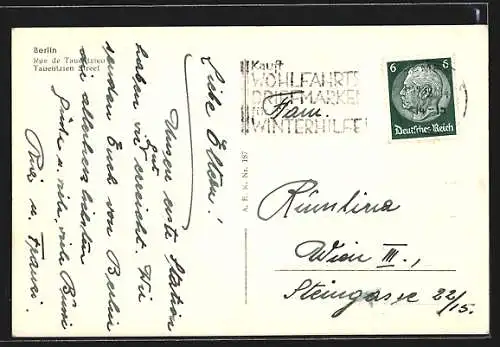 Berlin
Rue de Tauentzien
Tauentzien Street
Kauft
WOHLFAHRTS
BRIEFMARKEN
WINTERHILFE!
6 6
Deutsches Reich
Liebe Eltern!
Unsere erste Station
haben wir gut erreicht. Wir
senden Euch von Berlin
die allerherzlichsten
Grüße u. viele, viele Bussi
u. Franzi.
A. F. K. Nr. 187
Fam.
Wien III.,
Steingasse 22/15.